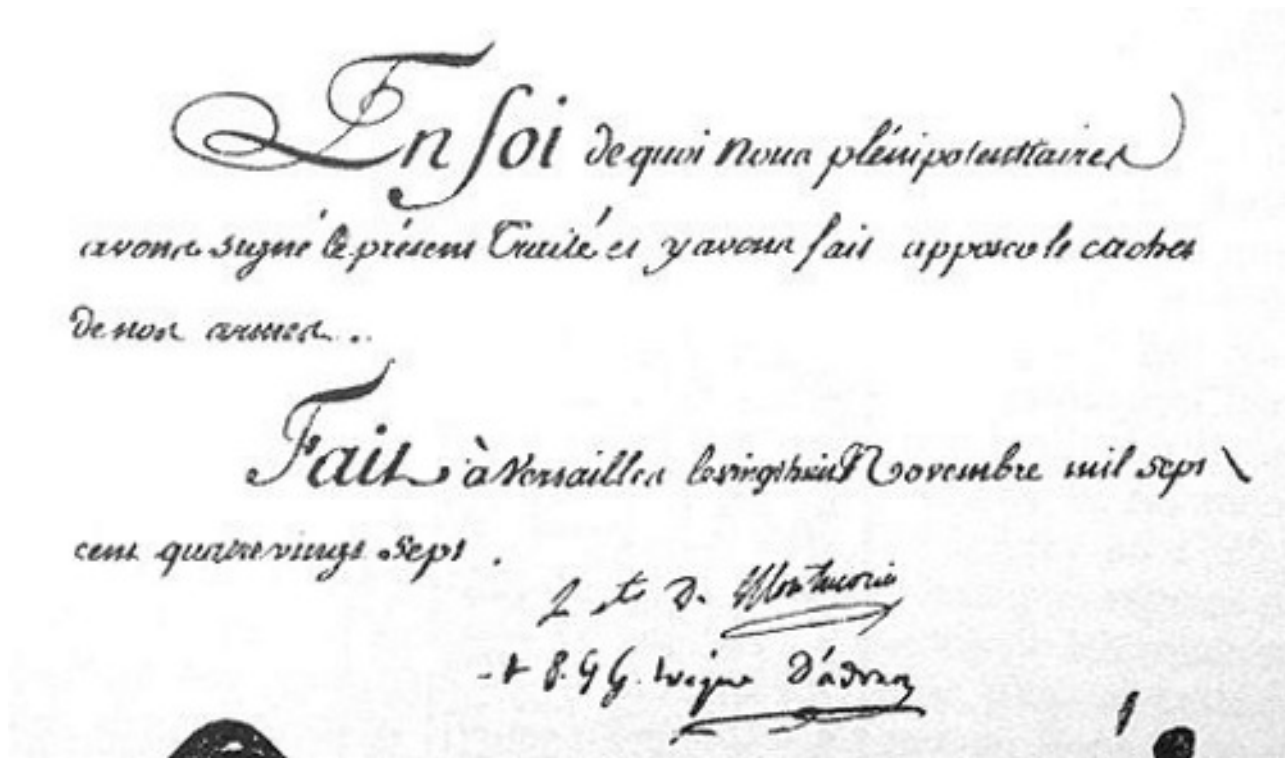 En foi de quoi nous plénipotentiaires
avons signé le présent Traité et y avons fait apposer le cachet
de nos armes..
Fait à Versailles le vingt huit Novembre mil sept
cent quatre vingt sept.
L. cte D. Montmorin
+ P. G G. évêque D'adran